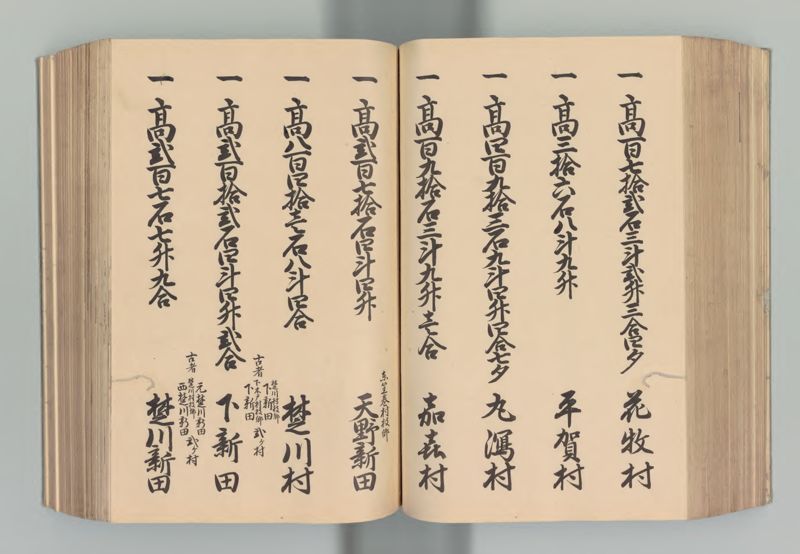 一高百七拾弐石三斗弐升三合四夕
花牧村
一高三拾六石八斗九升
平賀村
一高四百九拾三石九斗四升四合七夕
丸潟村
一高百九拾石三斗九升壱合
嘉㐂村
一高弐百七拾石四斗四升
天野新田
一高八百四拾壱石八斗四合
楚川村
一高弐百拾弐石四斗四升弐合
古者
楚川村枝郷
下新田
下木戸村枝郷
下新田
弐ケ村
下新田
一高弐百七石七升九合
古者
元楚川新田
楚川村枝郷
西楚川新田
弐ケ村
楚川新田